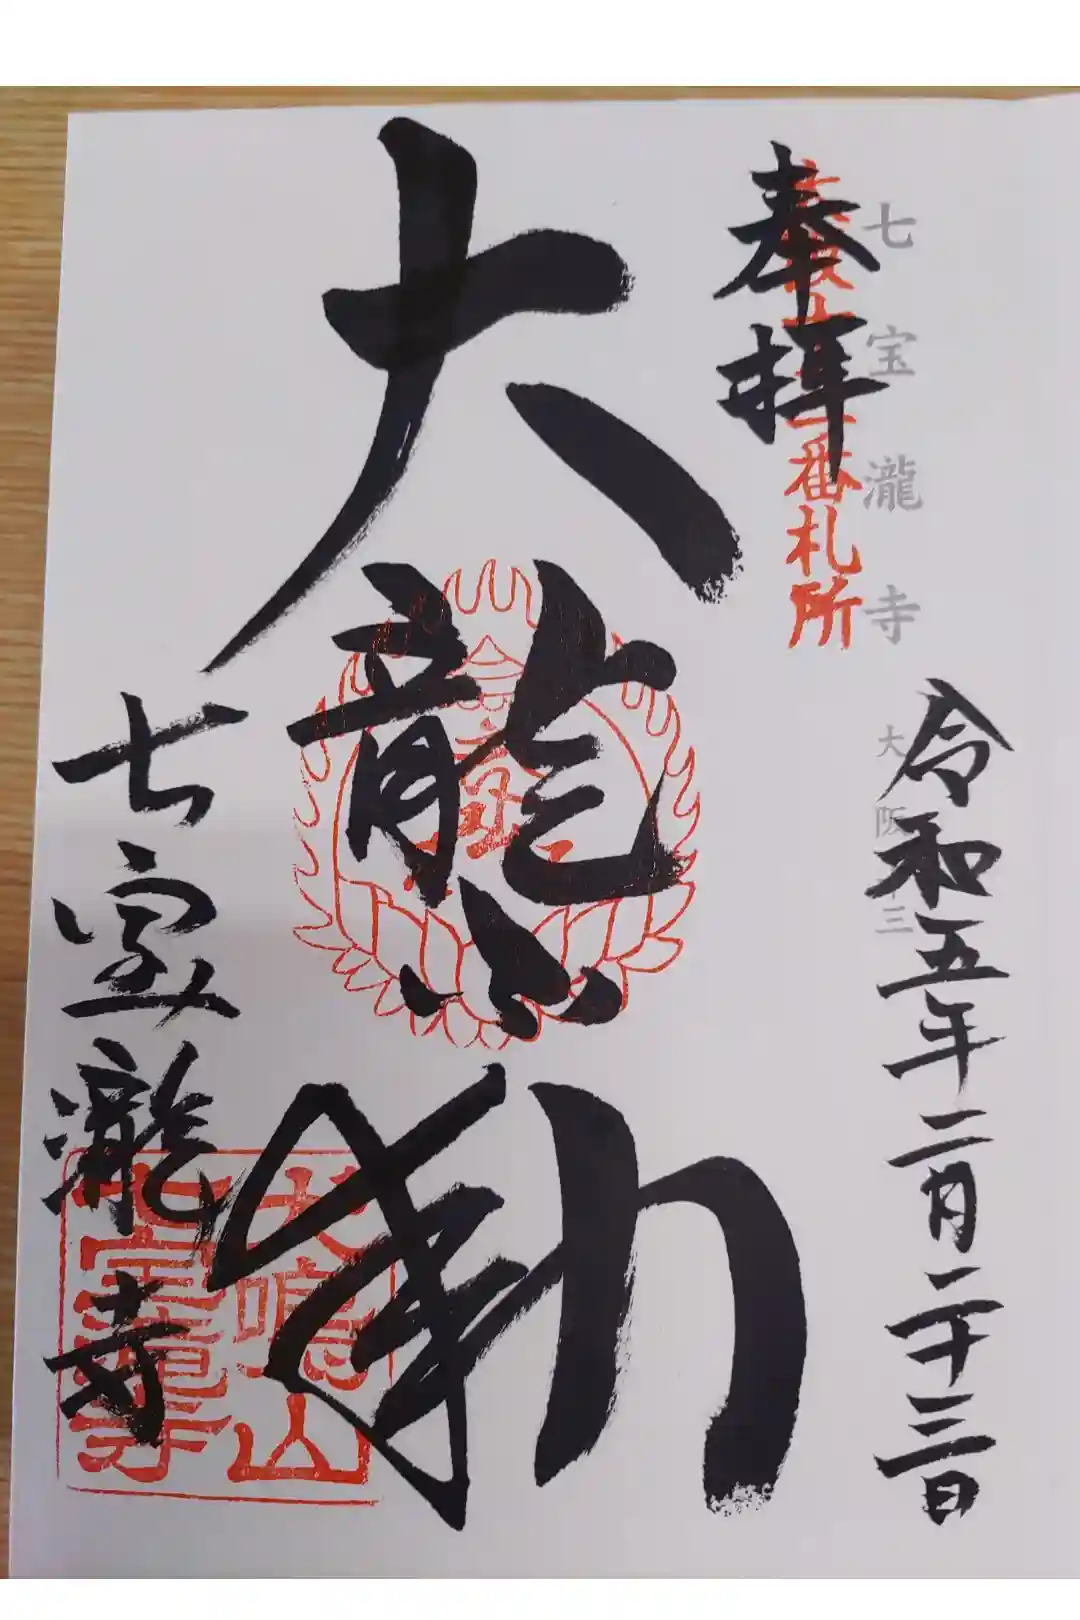 七宝瀧寺
大阪
三
奉拝
番札所
令和五年二月二十三日
大龍不動
七宝瀧寺
犬鳴山
七宝瀧寺